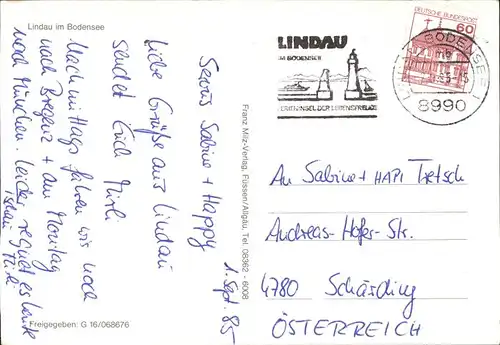 Lindau im Bodensee
1. Sept. 85
Servus Sabine + Happy
liebe Grüße aus Lindau
sendet Euch
Nachmittags fahren wir noch
nach Bregenz + am Montag
nach München. Leider regnet es heute
Freigegeben: G 16/068676
Franz Milz-Verlag, Füssen/Allgäu, Tel. 08362 - 6008
LINDAU
IM BODENSEE
DEUTSCHE BUNDESPOST
60
8990
An Sabine + HAPI Tretsch
Andreas-Hofer-Str.
4780 Schärding
ÖSTERREICH